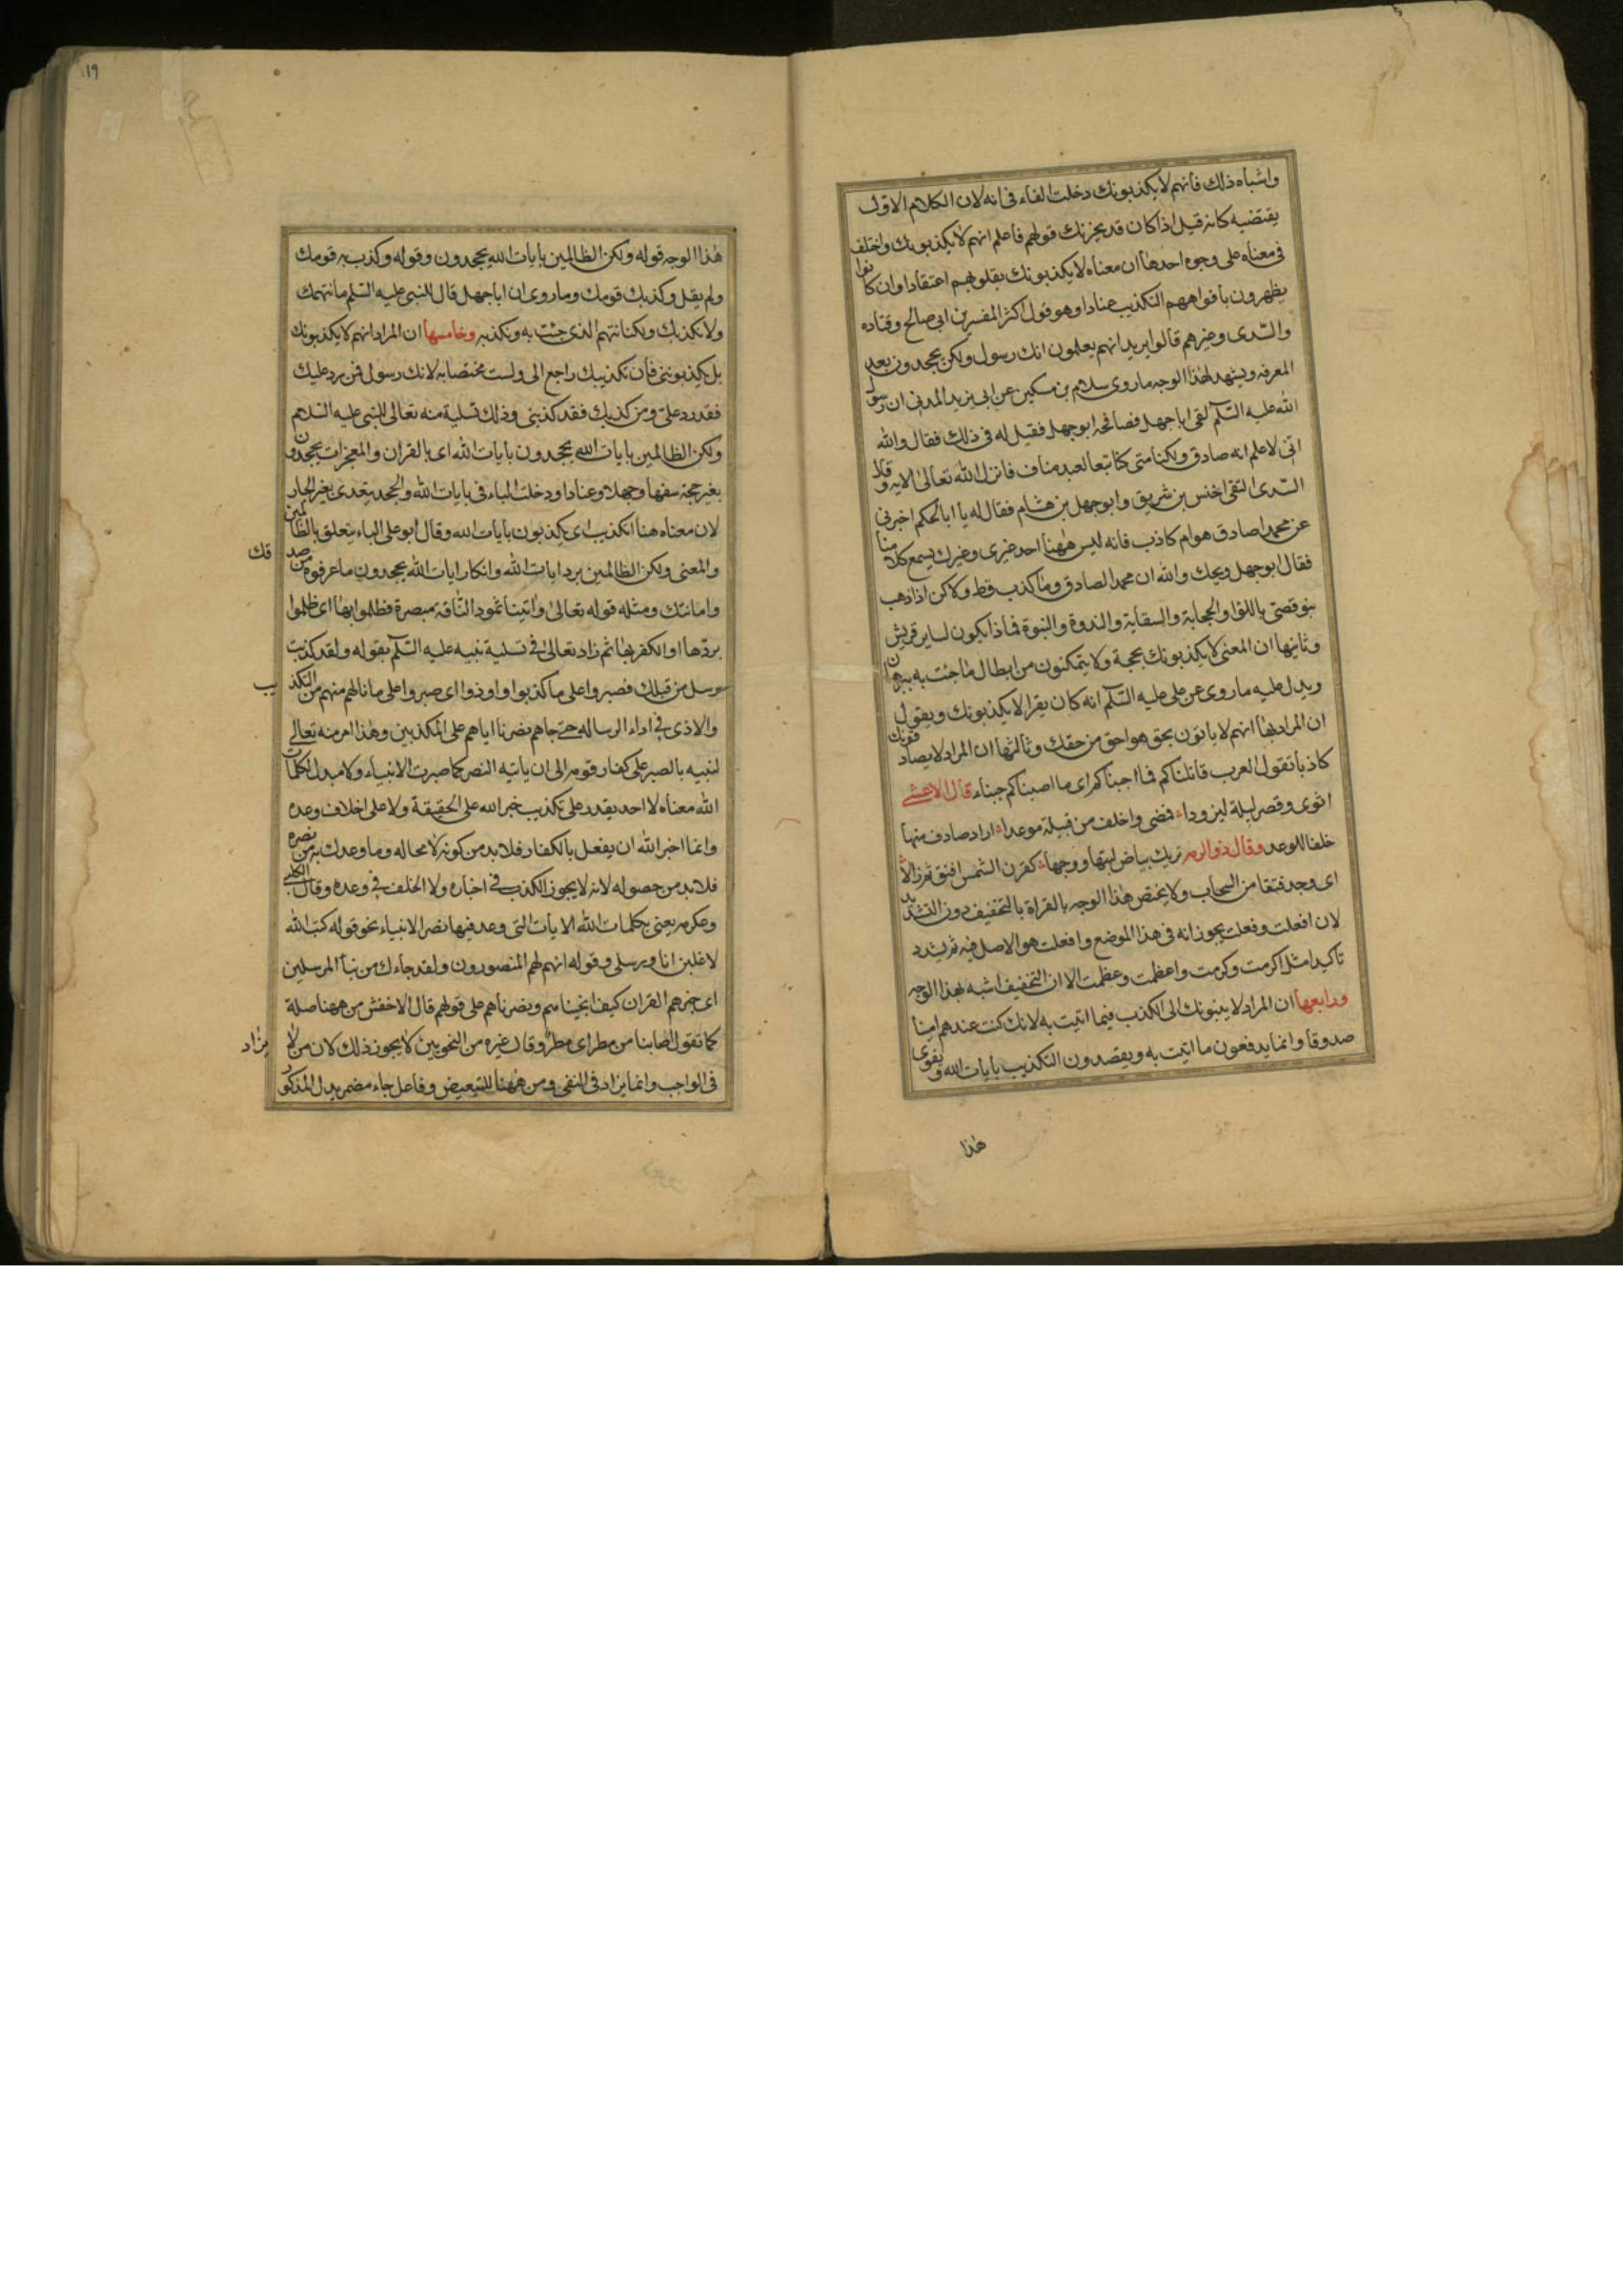 واشباه ذلك فانهم لا يكذبونك دخلت الفاء فى انه لان الكلام الاول
يقتضيه كانه قيل اذا كان قد يحزنك قولهم فاعلم انهم لا يكذبونك واختلف
فى معناه على وجوه احدها ان معناه لا يكذبونك بقلوبهم اعتقادا وان كانوا
يظهرون بافواههم التكذيب عنادا وهو قول اكثر المفسرين ابى صالح وقتاده
والسّدى وغيرهم قالوا يريد انهم يعلمون انك رسول ولكن يجحدون بعد
المعرفه ويشهد لهذا الوجه ما روى سلام بن مسكين عن ابى يزيد المدنى ان رسول
الله عليه السّلم لقى ابا جهل فصافحه ابو جهل فقيل له فى ذلك فقال والله
انّى لاعلم انه صادق ولكنا متى كنا تبعا لعبد مناف فانزل الله تعالى الايه وقال
السّدى التقى اخنس بن شريق وابو جهل بن هشام فقال له يا ابا الحكم اخبرنى
عن محمد اصادق هو ام كاذب فانه ليس ههنا احد غيرى وغيرك يسمع كلامنا
فقال ابو جهل ويحك والله ان محمد الصادق وما كذب قط ولاكن اذا ذهب
بنو قصىّ باللوا والحجابة والسقاية والندوة والنبوة فماذا يكون لساير قريش
وثانيها ان المعنى لا يكذبونك بحجة ولا يتمكنون من ابطال ما جئت به ببرهان
ويدل عليه ما روى عن على عليه السّلم انه كان يقرا لا يكذبونك ويقول
ان المراد بها انهم لا ياتون بحق هو احق من حقك وثالثها ان المراد لا يصادفونك
كاذبا تقول العرب قاتلناكم فما اجبناكم اى ما اصبناكم جبناء قال الاعشى
اثوى وقصر ليلة ليزودا فمضى واخلف من قبيلة موعدا اراد صادف منها
خلفا للوعد وقال ذو الرمه تريك بياض لبتها ووجها كقرن الشمس افتق ثم زالا
اى وجد فتقا من السحاب ولا يختص هذا الوجه بالقراة بالتخفيف دون التشديد
لان افعلت وفعلت يجوز انه فى هذا الموضع وافعلت هو الاصل فيه ثم يشدد
تاكيدا مثل اكرمت وكرمت واعظمت وعظمت الا ان التخفيف اشبه بهذا الوجه
ورابعها ان المراد لا ينبونك الى الكذب فيما اتيت به لانك كنت عندهم امينا
صدوقا وانما يدفعون ما اتيت به ويقصدون التكذيب بايات الله ويقوى
هذا
١٩
هذا الوجه قوله ولكن الظالمين بايات الله يجحدون وقوله وكذب به قومك
ولم يقل وكذبك قومك وما روى ان ابا جهل قال للنبى عليه السّلم ما نتهمك
ولا نكذبك ولكنا نتهم الذى جئت به ونكذبه وخامسها ان المراد انهم لا يكذبونك
بل يكذبوننى فان تكذيبك راجع الى ولست مختصا به لانك رسول فمن رد عليك
فقد رد علىّ ومن كذبك فقد كذبنى وذلك تسلية منه تعالى للنبى عليه السّلام
ولكن الظالمين بايات الله يجحدون بايات الله اى بالقران والمعجزات يجحدون
بغير حجة سفها وجهلا وعنادا ودخلت الباء فى بايات الله والجحد يتعدى بغير الجار
لان معناه هنا التكذيب اى يكذبون بايات الله وقال ابو على الباء يتعلق بالظالمين
والمعنى ولكن الظالمين برد ايات الله وانكار ايات الله يجحدون ما عرفوه من صدقك
وامانتك ومثله قوله تعالى واتينا ثمود الناقة مبصرة فظلموا بها اى ظلموا
بردّها او الكفر بها ثم زاد تعالى فى تسلية نبيه عليه السّلم بقوله ولقد كذبت
رسل من قبلك فصبروا على ما كذبوا واوذوا اى صبروا على ما نالهم منهم من التكذيب
والاذى فى اداء الرساله حتى جاهم نصرنا اياهم على المكذبين وهذا امر منه تعالى
لنبيه بالصبر على كفار قومه الى ان ياتيه النصر كما صبرت الانبياء ولا مبدل لكلمات
الله معناه لا احد يقدر على تكذيب خبر الله على الحقيقة ولا على اخلاف وعده
وانما اخبر الله ان يفعل بالكفار فلا بد من كونه لا محاله وما وعدك به من نصره
فلا بد من حصوله لانه لا يجوز الكذب فى اخباره ولا الخلف فى وعده وقال الكلبى
وعكرمه يعنى بكلمات الله الايات التى وعد فيها نصر الانبياء نحو قوله كتب الله
لاغلبن انا ورسلى وقوله انهم لهم المنصورون ولقد جاءك من نبأ المرسلين
اى خبرهم القران كيف انجيناهم ونصرناهم على قولهم قال الاخفش من ههنا صلة
كما تقول اصابنا من مطر اى مطر وقال غيره من النحويين لا يجوز ذلك لان من لا يزاد
فى الواجب وانما يزاد فى النفى ومن ههنا للتبعيض وفاعل جاء مضمر يدل المذكور